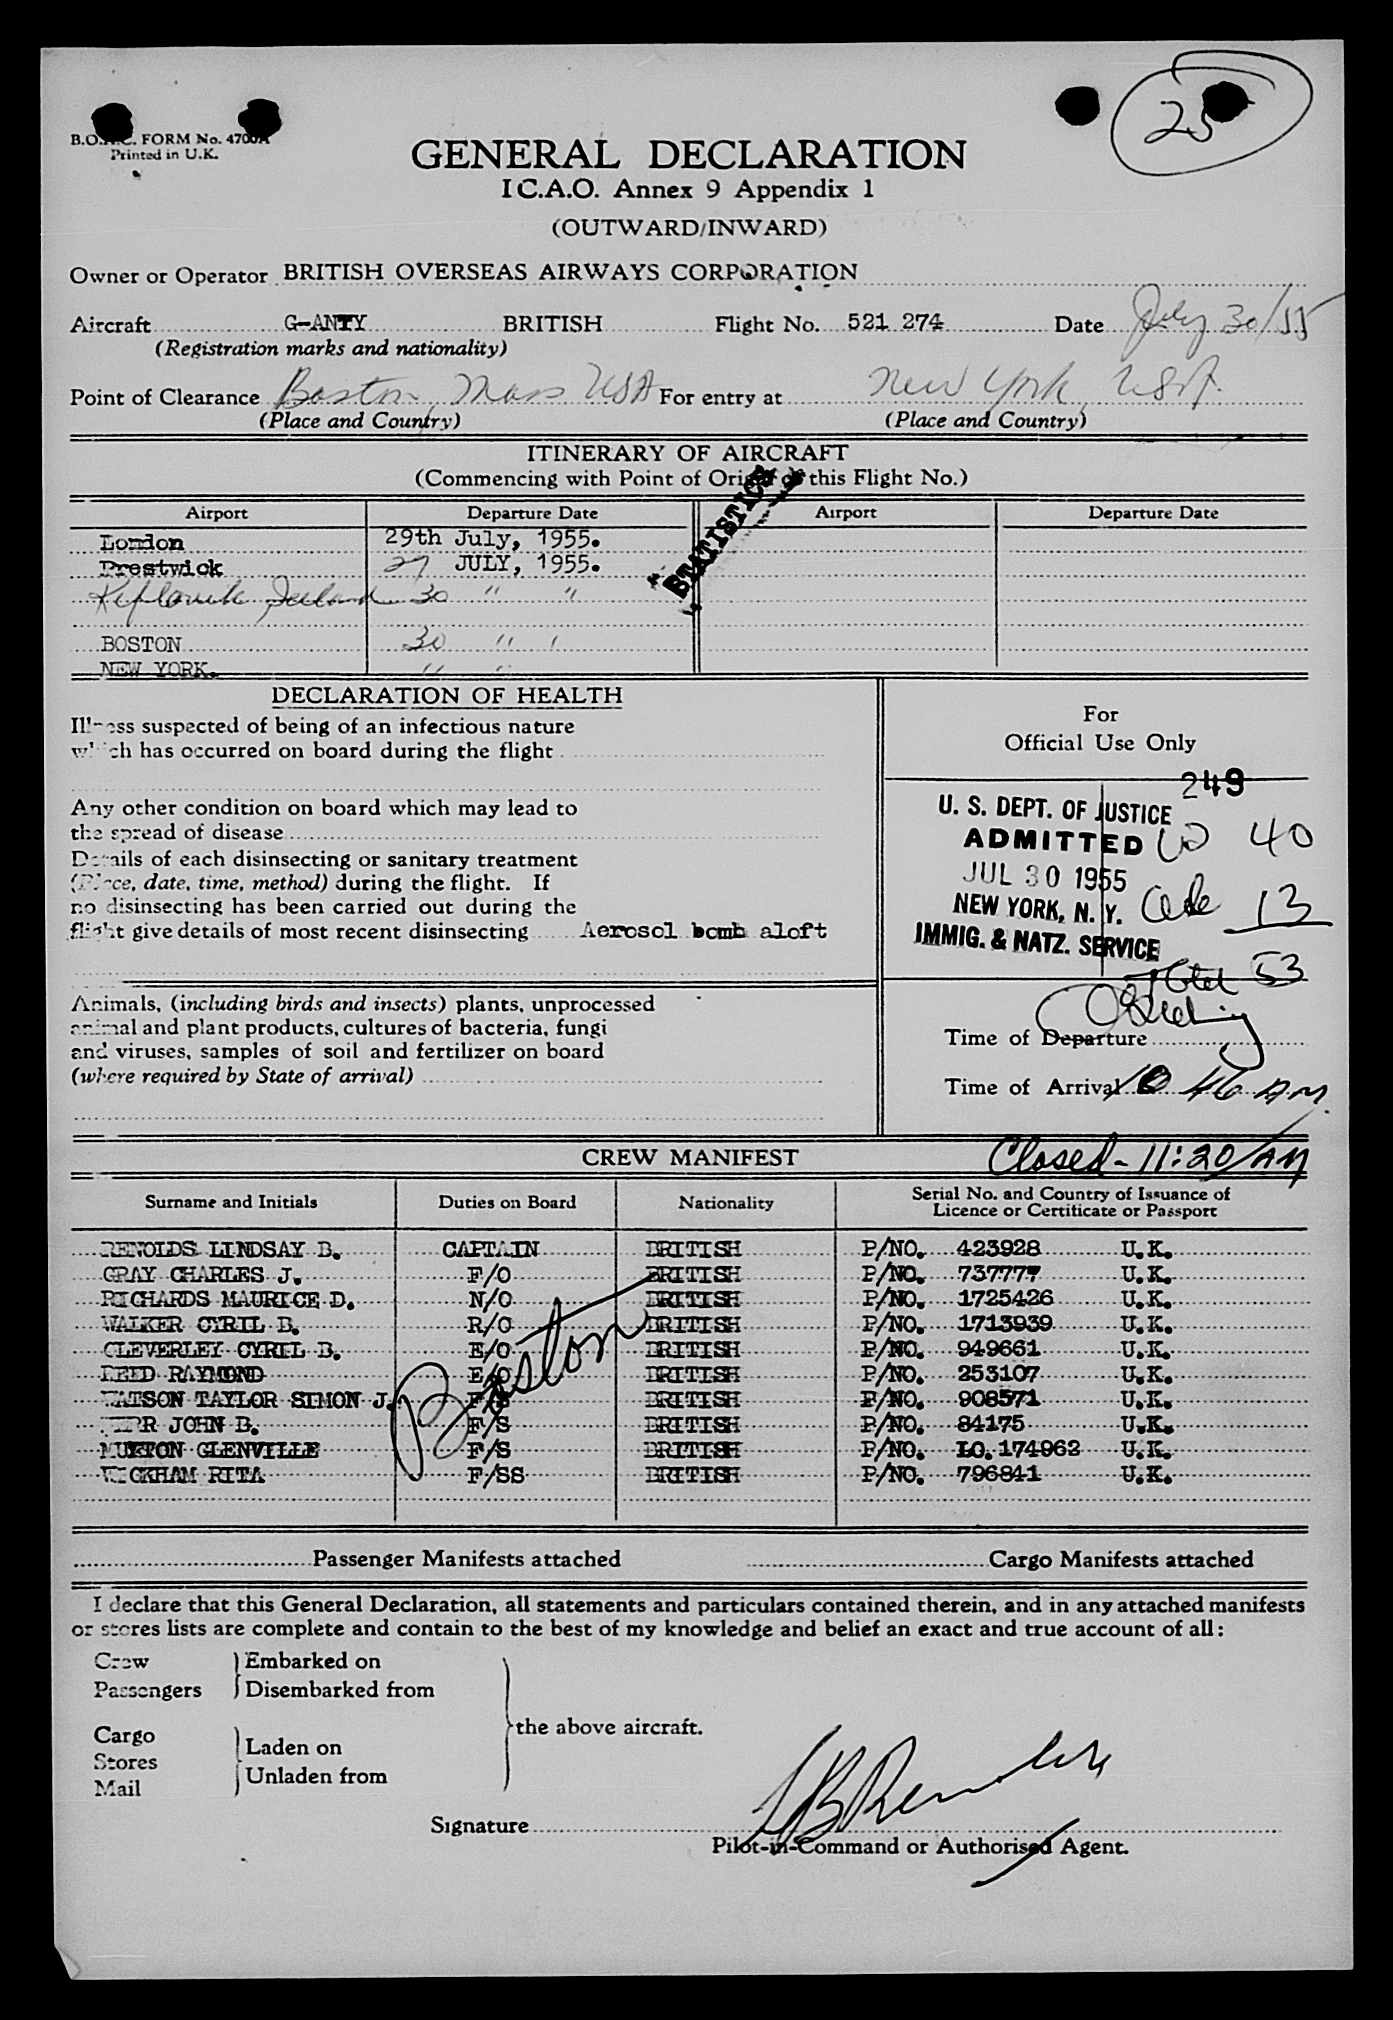 25
B.O.A.C. FORM No. 4700A
Printed in U.K.
GENERAL DECLARATION
I C.A.O. Annex 9 Appendix 1
(OUTWARD/INWARD)
Owner or Operator BRITISH OVERSEAS AIRWAYS CORPORATION
Aircraft G-ANTY BRITISH Flight No. 521 274 Date July 30/55
(Registration marks and nationality)
Point of Clearance Boston Mass USA For entry at New York, USA.
(Place and Country) (Place and Country)
ITINERARY OF AIRCRAFT
(Commencing with Point of Origin of this Flight No.)
STATISTICS
Airport Departure Date Airport Departure Date
London 29th July, 1955.
Prestwick 29 JULY, 1955.
Keflavik Iceland 30 " "
BOSTON 30 " "
NEW YORK. " "
DECLARATION OF HEALTH
Illness suspected of being of an infectious nature
which has occurred on board during the flight
Any other condition on board which may lead to
the spread of disease
Details of each disinsecting or sanitary treatment
(Place, date, time, method) during the flight. If
no disinsecting has been carried out during the
flight give details of most recent disinsecting Aerosol bomb aloft
Animals, (including birds and insects) plants, unprocessed
animal and plant products, cultures of bacteria, fungi
and viruses, samples of soil and fertilizer on board
(where required by State of arrival)
For
Official Use Only
249
U. S. DEPT. OF JUSTICE
ADMITTED 40
JUL 30 1955
NEW YORK, N. Y. 13
IMMIG. & NATZ. SERVICE
Total 53
Time of Departure
Time of Arrival 10 46 A.M.
Closed - 11:20/AM
CREW MANIFEST
Surname and Initials Duties on Board Nationality Serial No. and Country of Issuance of
Licence or Certificate or Passport
RENOLDS LINDSAY B. CAPTAIN BRITISH P/NO. 423928 U.K.
GRAY CHARLES J. F/O BRITISH P/NO. 737777 U.K.
RICHARDS MAURICE D. N/O BRITISH P/NO. 1725426 U.K.
WALKER CYRIL B. R/O BRITISH P/NO. 1713939 U.K.
CLEVERLEY CYRIL B. E/O BRITISH P/NO. 949661 U.K.
REED RAYMOND E/O BRITISH P/NO. 253107 U.K.
WATSON TAYLOR SIMON J. F/S BRITISH P/NO. 908571 U.K.
JOHN B. F/S BRITISH P/NO. 84175 U.K.
MUXTON GLENVILLE F/S BRITISH P/NO. LO. 174962 U.K.
WICKHAM RITA F/SS BRITISH P/NO. 796841 U.K.
Boston
Passenger Manifests attached Cargo Manifests attached
I declare that this General Declaration, all statements and particulars contained therein, and in any attached manifests
or stores lists are complete and contain to the best of my knowledge and belief an exact and true account of all:
Crew Embarked on
Passengers Disembarked from
the above aircraft.
Cargo
Stores Laden on
Mail Unladen from
Signature LB Renolds
Pilot-in-Command or Authorised Agent.